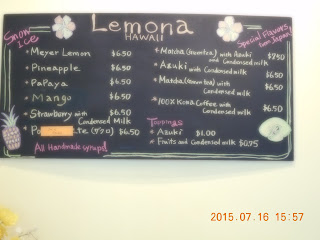 Lemona
HAWAII
Snow
Ice
Special Flavors
from Japan!
• Meyer Lemon $6.50
• Pineapple $6.50
• PaPaya $6.50
• Mango $6.50
• Strawberry with $6.50
Condensed Milk
• Po te (ザクロ) $6.50
All Handmade syrups!
* Matcha (Green tea) with Azuki
and Condensed milk $7.50
* Azuki with Condensed milk $6.50
* Matcha (Green tea) with $6.50
Condensed milk
* 100% Kona Coffee with $6.50
Condensed milk
Toppings
* Azuki $1.00
* Fruits and Condensed milk $0.75
2015.07.16 15:57